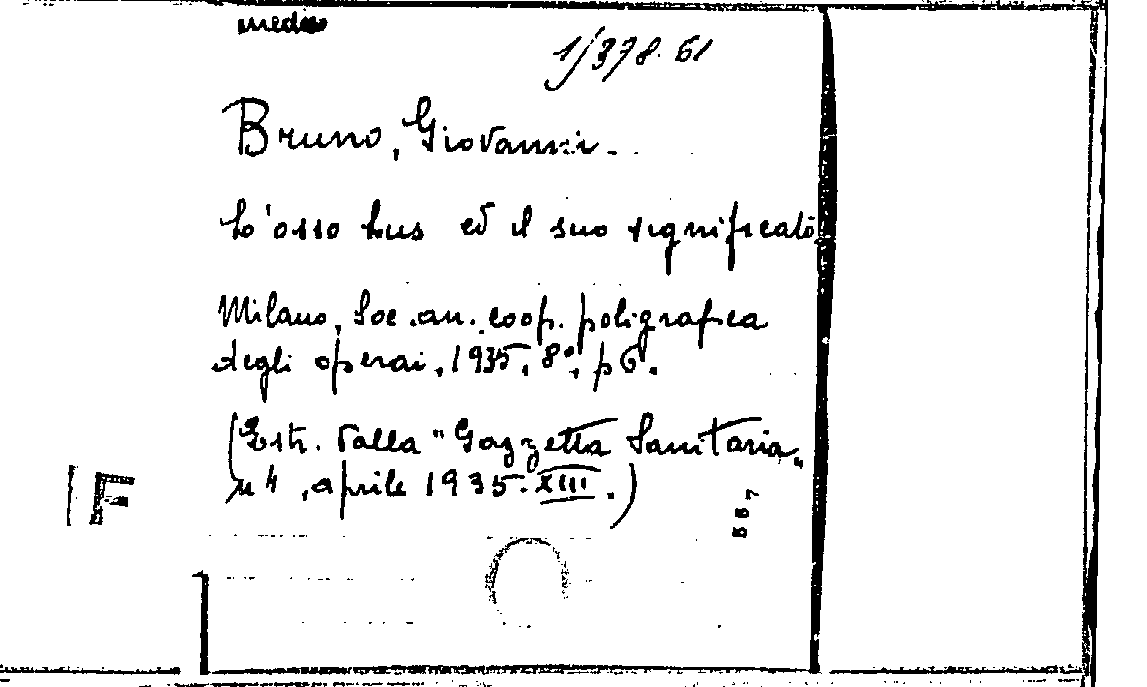 medico
1/378.61
Bruno, Giovanni.
L'osso Lus ed il suo significato
Milano, Soc. an. coop. poligrafica
degli operai, 1935, 8°, p 6.
(Estr. dalla "Gazzetta Sanitaria„
n 4, aprile 1935-XIII.)
557
F